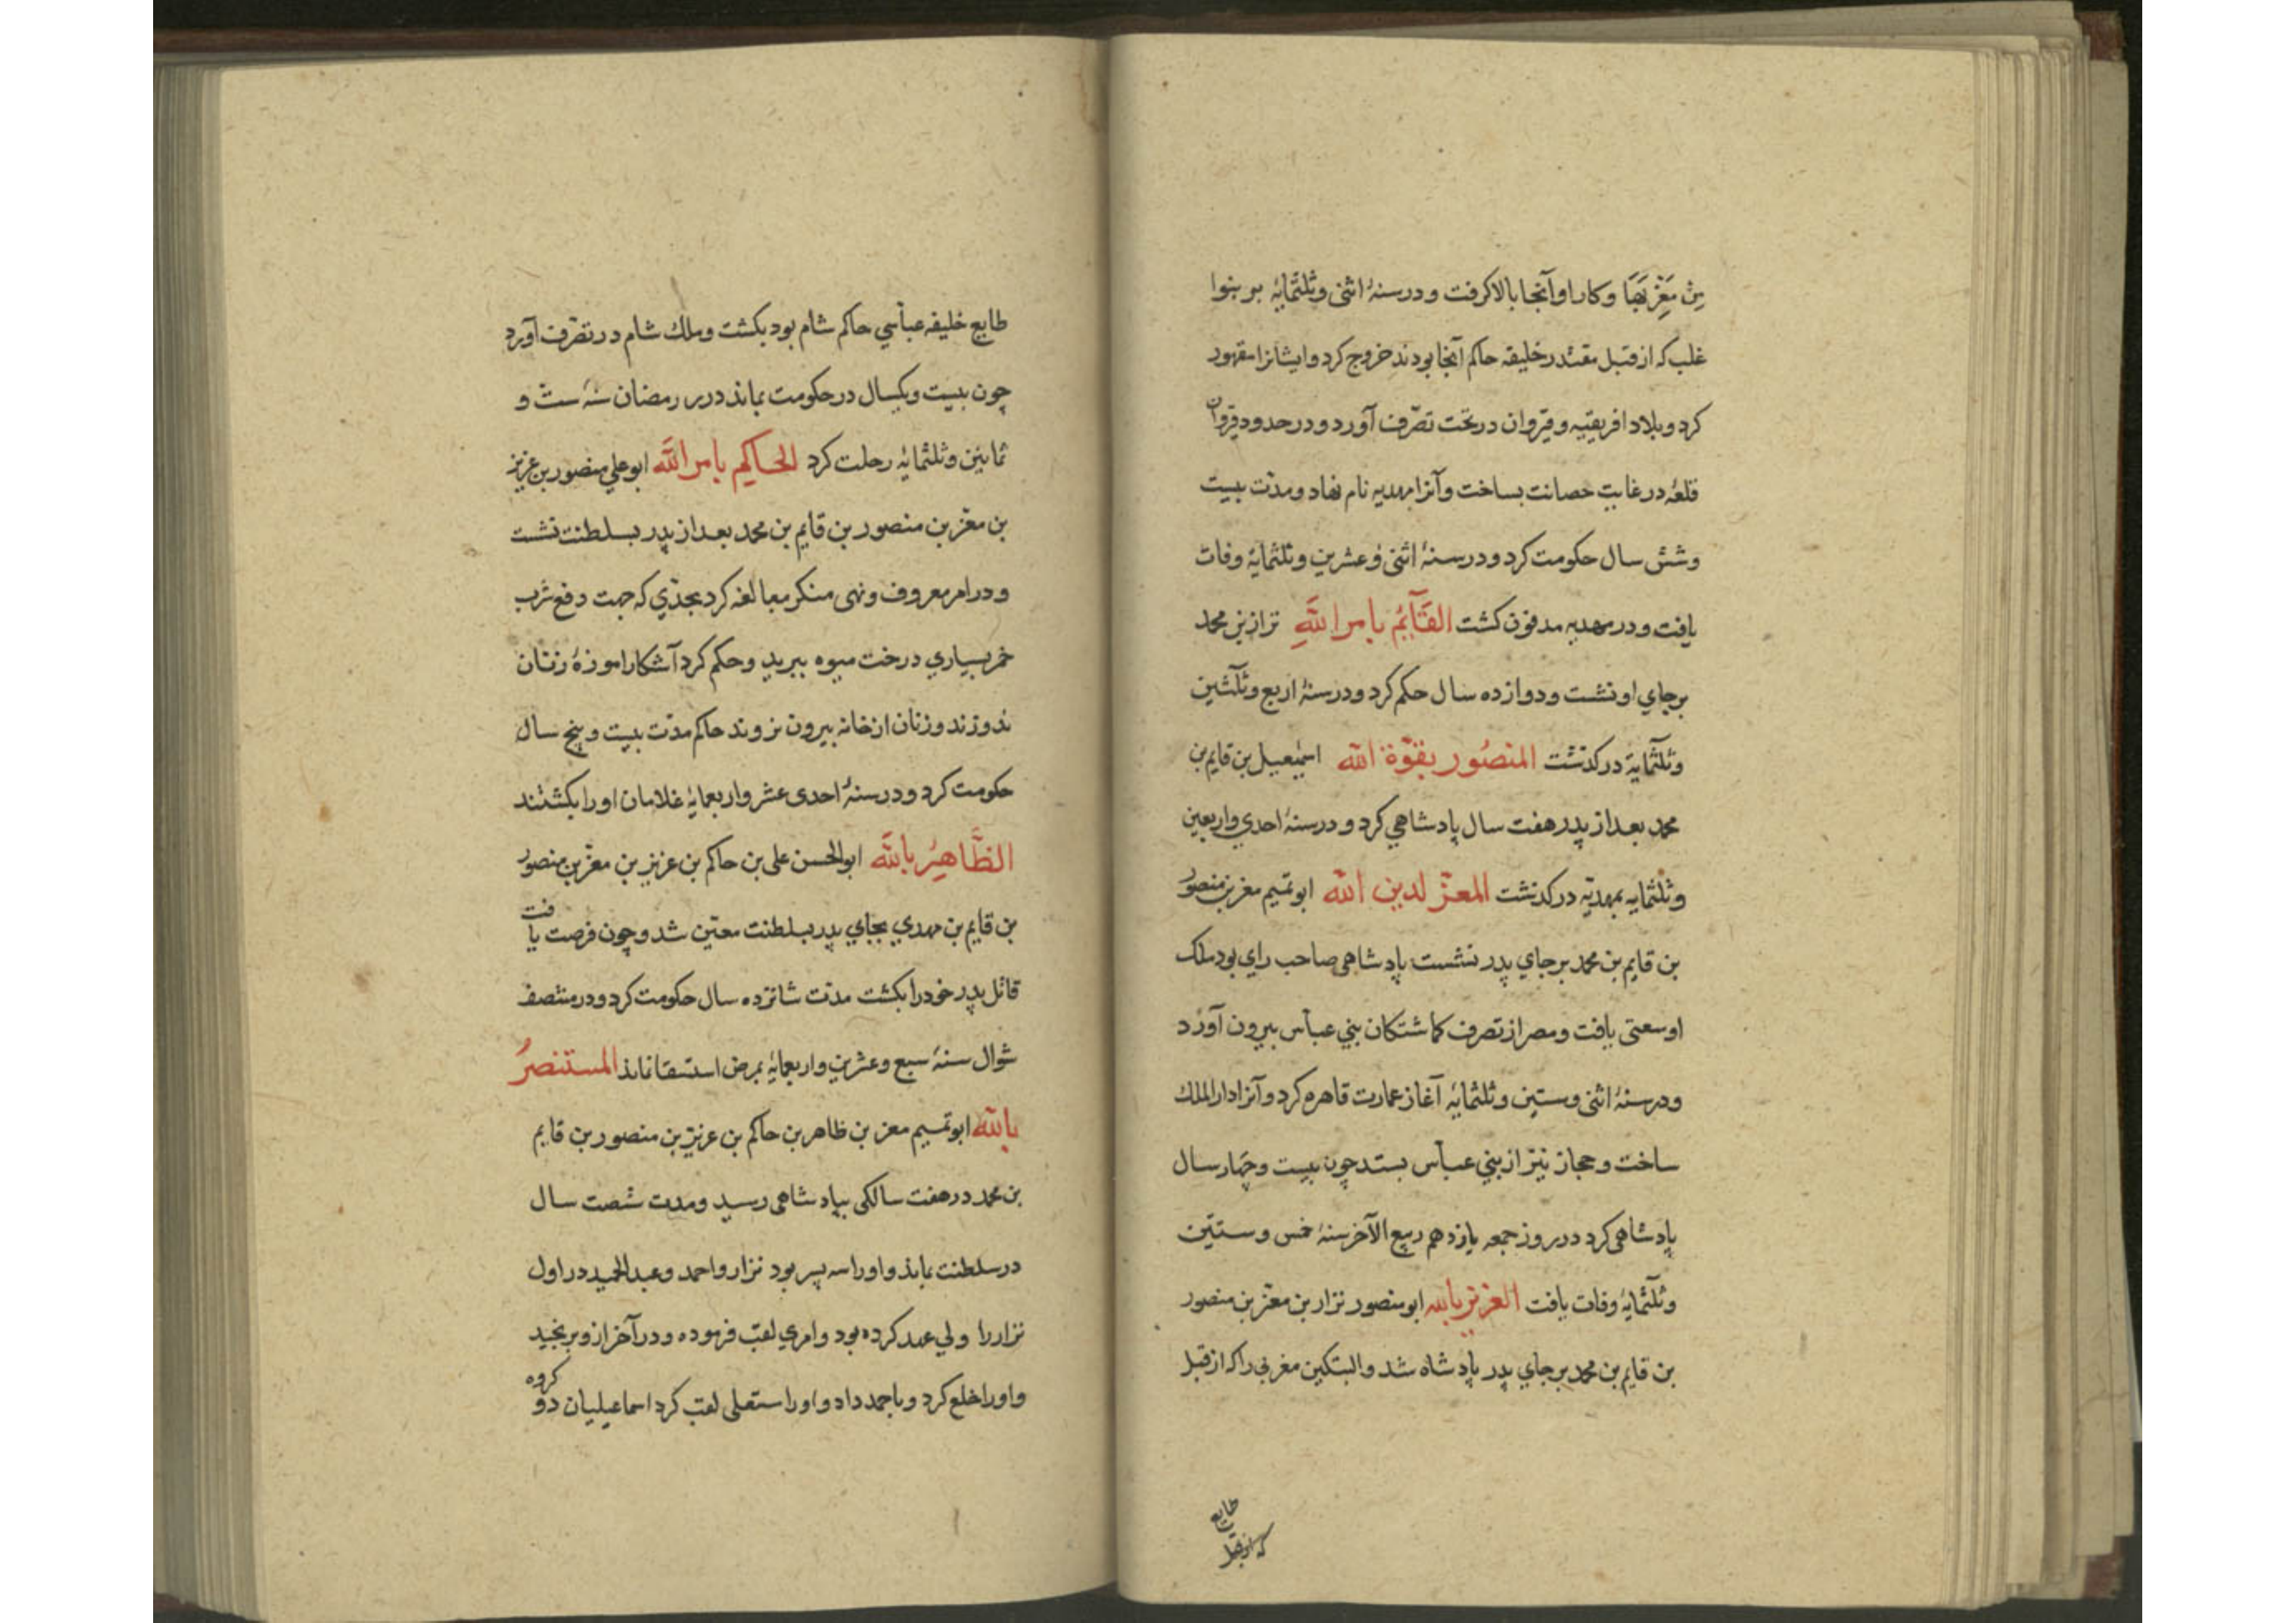 مِنْ مَغْرِبِهَا وکار او آنجا بالا کرفت ودر سنهٔ اثنی وثلثمایهٔ بر بنوا
غلب که از قبل مقتدر خلیفه حاکم آنجا بودند خروج کرد وایشانرا مقهور
کرد وبلاد افریقیه وقیروان در تحت تصرّف آورد ودر حدود قیروان
قلعهٔ در غایت حصانت بساخت وآنرا مهدیه نام نهاد ومدّت بیست
وشش سال حکومت کرد ودر سنهٔ اثنی وعشرین وثلثمایهٔ وفات
یافت ودر مهدیه مدفون کشت القَآئِمُ بامر اللَّهِ نزار بن محمد
برجاي او نشست ودوازده سال حکم کرد ودر سنهٔ اربع وثلثین
وثلثمایة درکذشت المنصُور بقوّة الله اسمٰعیل بن قایم بن
محمد بعد از پدر هفت سال پادشاهي کرد ودر سنهٔ احدي واربعین
وثلثمایه بمهدیّه درکذشت المعزّ لدین الله ابو تمیم معز بن منصور
بن قایم بن محمد برجاي پدر نشست پادشاهی صاحب راي بود ملک
او سعتی یافت ومصر از تصرف کماشتکان بني عباس بیرون آورد
ودر سنهٔ اثنی وستین وثلثمایهٔ آغاز عمارت قاهره کرد وآنرا دار الملك
ساخت وحجاز نیز از بني عباس بستد چون بیست وچهار سال
پادشاهی کرد در روز جمعه یازدهم ربیع الآخر سنهٔ خمس وستین
وثلثمایهٔ وفات یافت العزیز بالله ابو منصور نزار بن معزّ بن منصور
بن قایم بن محمد برجاي پدر پادشاه شد والبتکین مغربی را که از قبل
طایع
که از قبل
طایع خلیفه عباسي حاکم شام بود بکشت وملك شام در تصرّف آورد
چون بیست ویکسال در حکومت بماند در رمضان سنهٔ ست و
ثمانین وثلثمایهٔ رحلت کرد الحاکم بامر اللَّه ابو علي منصور بن عزیز
بن معزّ بن منصور بن قایم بن محمد بعد از پدر بسلطنت نشست
ودر امر معروف ونهی منکر مبالغه کرد بحدّي که جهت دفع شرب
خمر بسیاري درخت میوه ببرید وحکم کرد آشکارا موزهٔ زنان
ندوزند وزنان از خانه بیرون نروند حاکم مدّت بیست وپنج سال
حکومت کرد ودر سنهٔ احدی عشر واربعمایهٔ غلامان او را بکشتند
الظَّاهِرُ بالله ابو الحسن علی بن حاکم بن عزیز بن معزّ بن منصور
بن قایم بن مهدي بجاي پدر بسلطنت معیّن شد وچون فرصت یافت
قاتل پدر خود را بکشت مدّت شانزده سال حکومت کرد ودر منتصف
شوال سنهٔ سبع وعشرین واربعمایهٔ بمرض استسقا نماند المستنصرُ
بالله ابو تمیم معز بن ظاهر بن حاکم بن عزیز بن منصور بن قایم
بن محمد در هفت سالکی بپادشاهی رسید ومدت شصت سال
در سلطنت بماند واو را سه پسر بود نزار واحمد وعبد الحمید در اول
نزار را ولي عهد کرده بود وامري لقب فرموده ودر آخر ازو برنجید
واو را خلع کرد وباحمد داد واو را مستعلی لقب کرد اسماعیلیان دو کروه